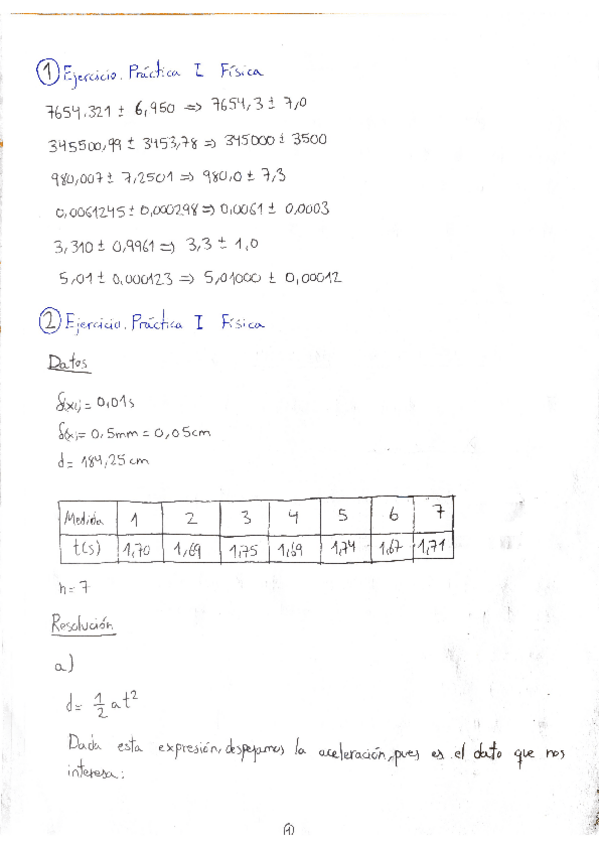 1 Ejercicio. Práctica I Física
7654,321 ± 6,950 => 7654,3 ± 7,0
345500,99 ± 3453,78 => 345000 ± 3500
980,007 ± 7,2501 => 980,0 ± 7,3
0,0061245 ± 0,000298 => 0,0061 ± 0,0003
3,310 ± 0,9961 => 3,3 ± 1,0
5,01 ± 0,000123 => 5,01000 ± 0,00012
2 Ejercicio. Práctica I Física
Datos
= 0,01s
= 0,5mm = 0,05cm
d = 184,25 cm
Medida 1 2 3 4 5 6 7
t(s) 1,70 1,69 1,75 1,69 1,74 1,67 1,71
n = 7
Resolución
a)
d = 1/2 at²
Dada esta expresión, despejamos la aceleración, pues es el dato que nos
interesa: